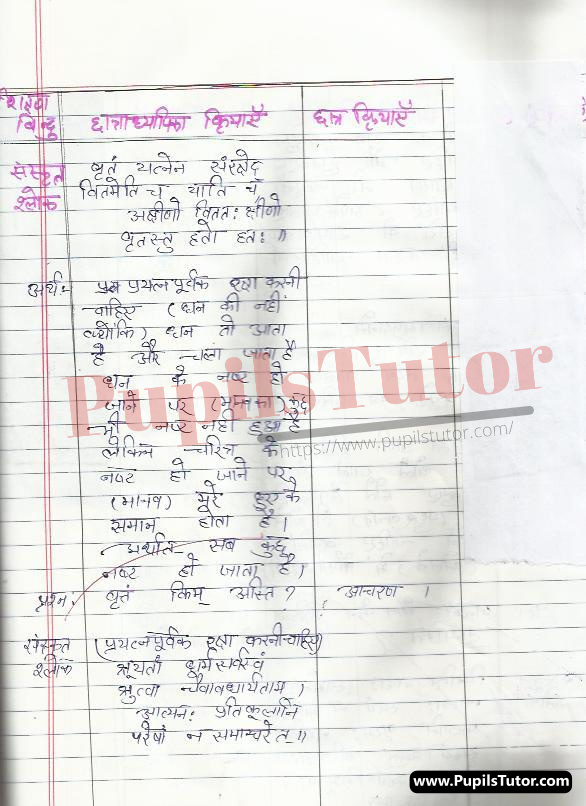 शिक्षण
बिन्दु छात्राध्यापिका क्रियाएँ छात्र क्रियाएँ
संस्कृत श्लोक
वृतं यत्नेन संरक्षेद्
वितमेति च याति च
अक्षीणो विततः क्षीणो
वृतस्तु हतो हतः ॥
अर्थः- प्रयत्नपूर्वक रक्षा करनी
चाहिए (धन की नहीं
क्योंकि) धन तो आता
है और चला जाता है
धन के नष्ट हो
जाने पर कुछ
भी नष्ट नहीं है
लेकिन चरित्र के
नष्ट हो जाने पर
(मानव) मरे हुए के
समान होता है।
अर्थात सब कुछ
नष्ट हो जाता है।
प्रश्न. वृतं किम् अस्ति? आचरण ।
(प्रयत्नपूर्वक रक्षा करनी चाहिए)
संस्कृत श्लोक
श्रूयतां धर्मसर्वस्वं
श्रुत्वा चैवावधार्यताम् ।
आत्मनः प्रतिकूलानि
परेषां न समाचरेत् ॥
PupilsTutor
https://www.pupilstutor.com/
www.PupilsTutor.com